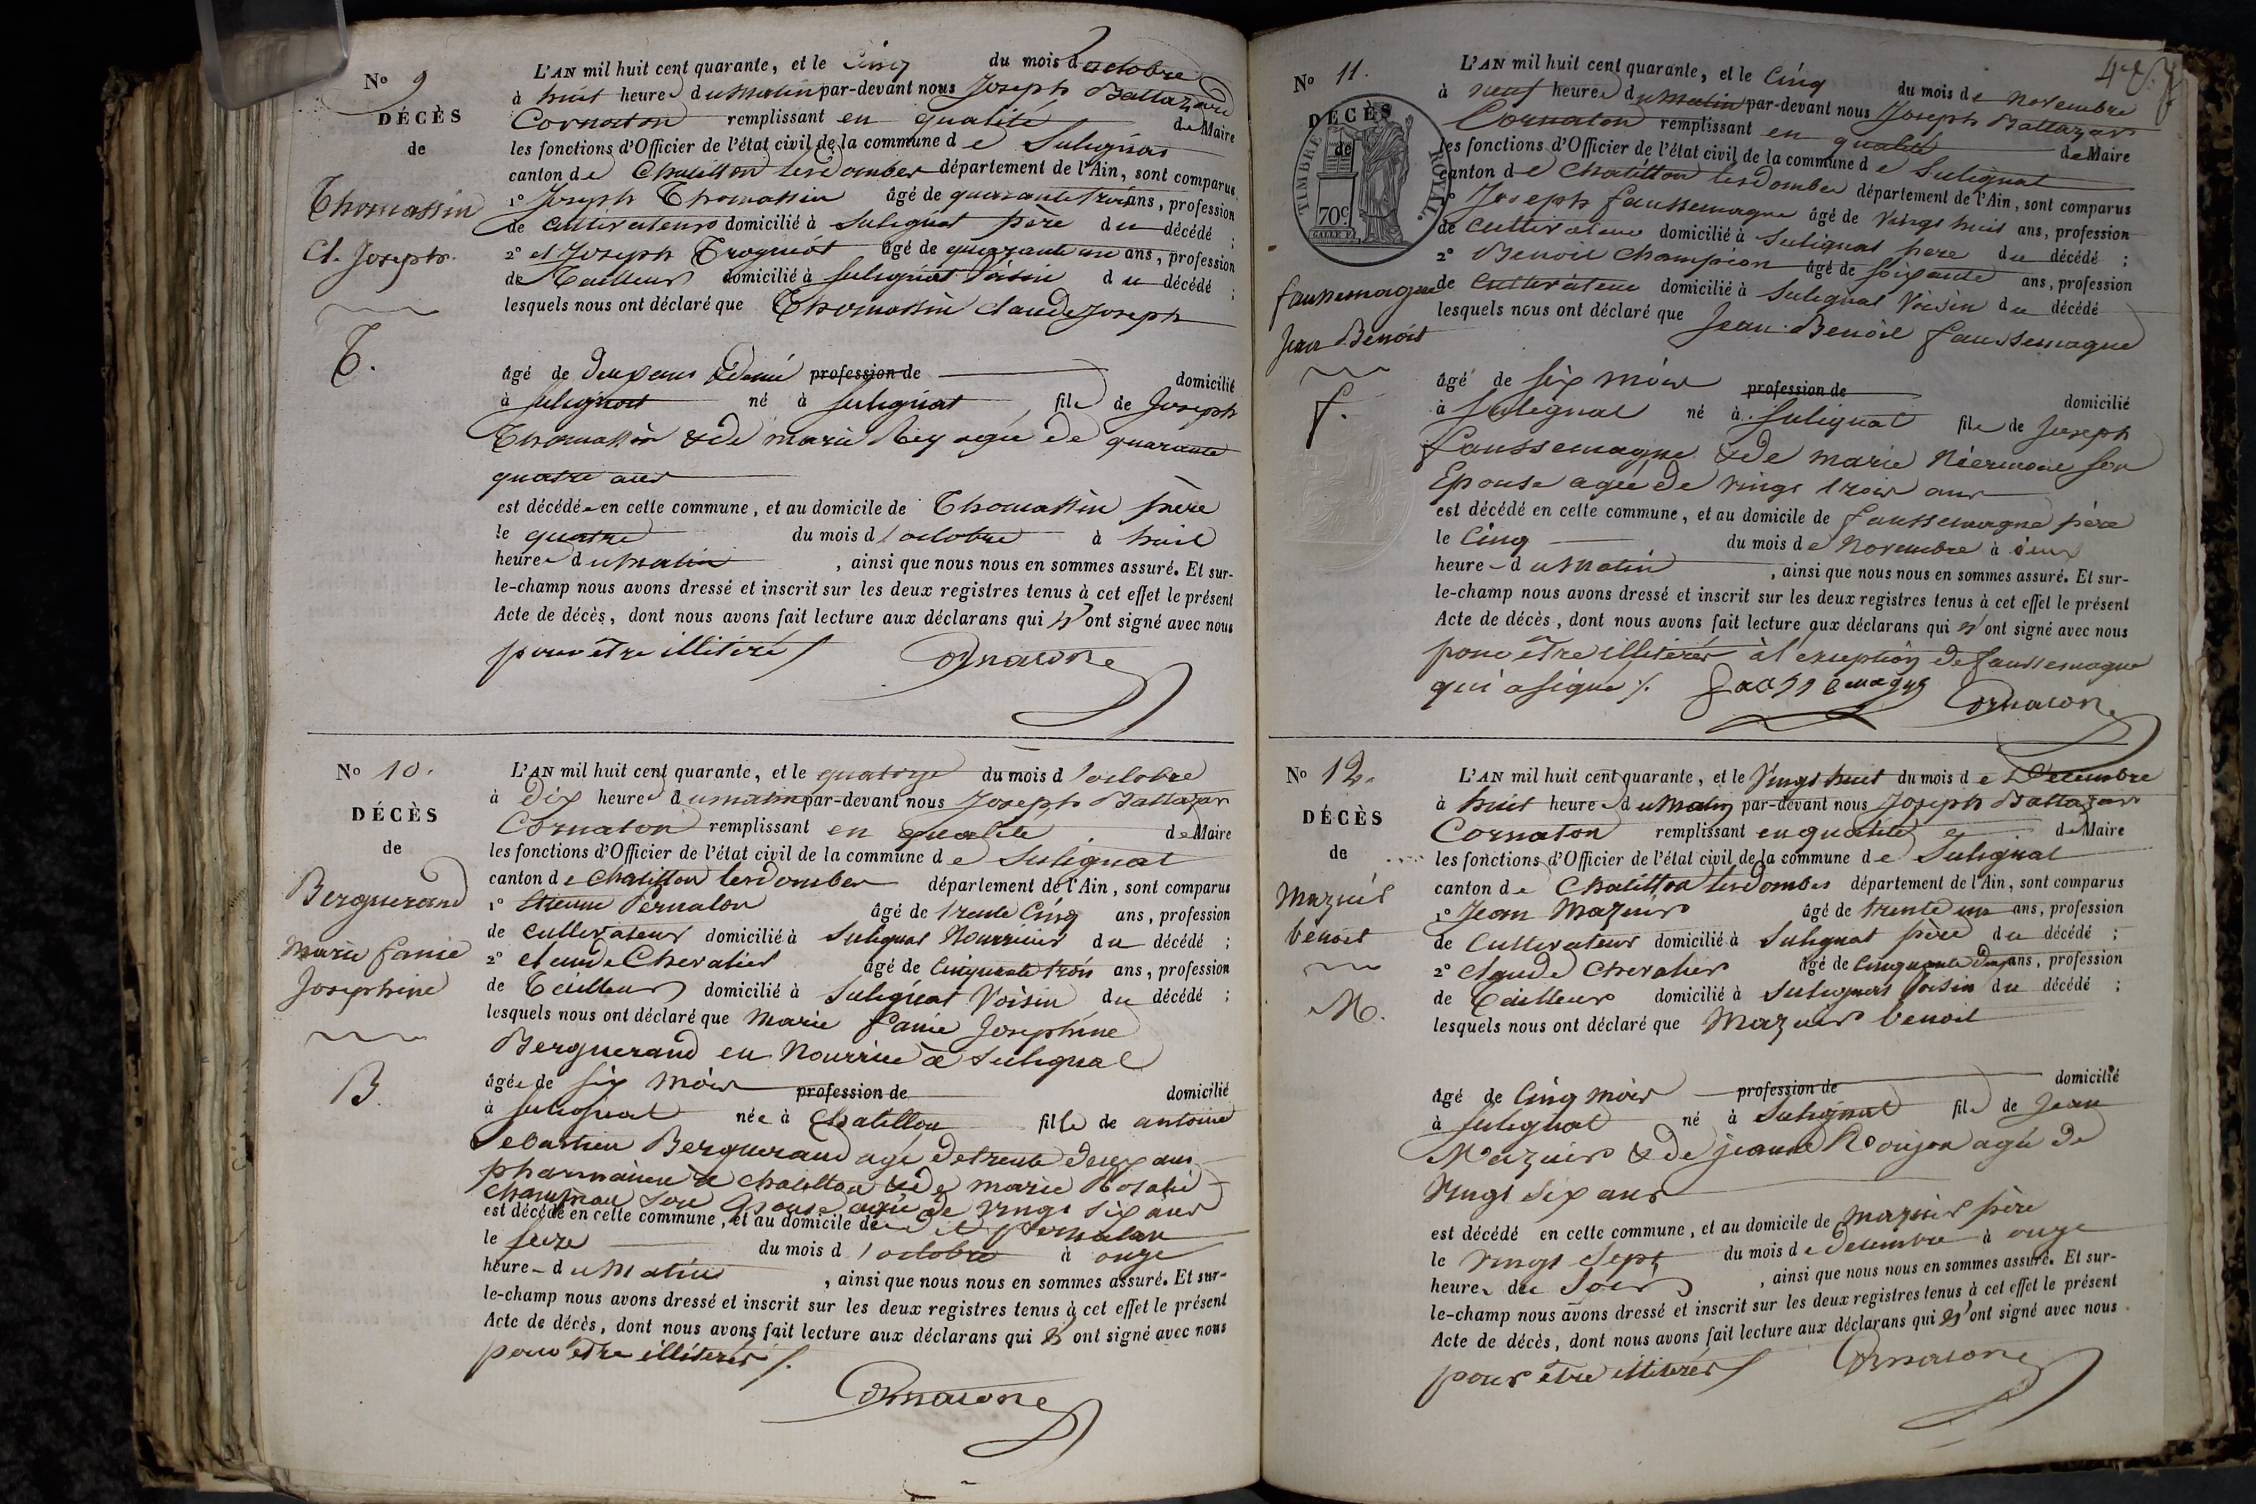 No 9
DÉCÈS
de
Thomassin
Cl. Joseph.
T.
L'AN mil huit cent quarante, et le Cinq du mois d'octobre
à huit heures du Matin par-devant nous Joseph Baltazard
Cornaton remplissant en qualité de Maire
les fonctions d'Officier de l'état civil de la commune de Sulignat
canton de Chatillon les Dombes département de l'Ain, sont comparus
1° Joseph Thomassin âgé de quarante trois ans, profession
de cultivateur domicilié à Sulignat père du décédé ;
2° et Joseph Troquiot âgé de quarante un ans, profession
de Tailleur domicilié à Sulignat Voisin du décédé ;
lesquels nous ont déclaré que Thomassin claude Joseph
âgé de deux ans & demi profession de domicilié
à Sulignat né à Sulignat fils de Joseph
Thomassin & de marie Rey agée de quarante
quatre ans
est décédé en cette commune, et au domicile de Thomassin père
le quatre du mois d'octobre à huit
heures du Matin , ainsi que nous nous en sommes assuré. Et sur-
le-champ nous avons dressé et inscrit sur les deux registres tenus à cet effet le présent
Acte de décès, dont nous avons fait lecture aux déclarans qui n'ont signé avec nous
pour être illitéré /
Cornaton
No 10.
DÉCÈS
de
Berguerand
Marie fanie
Josephine
B.
L'AN mil huit cent quarante, et le quatorze du mois d'octobre
à dix heures du matin par-devant nous Joseph Baltazar
Cornaton remplissant en qualité de Maire
les fonctions d'Officier de l'état civil de la commune de Sulignat
canton de Chatillon les Dombes département de l'Ain, sont comparus
1° Etienne Pernalon âgé de trente Cinq ans, profession
de cultivateur domicilié à Sulignat Nourricier du décédé ;
2° claude Chevalier âgé de Cinquante trois ans, profession
de Tailleur domicilié à Sulignat Voisin du décédé ;
lesquels nous ont déclaré que Marie fanie Josephine
Berguerand en Nourrice à Sulignat
âgée de six mois profession de domicilié
à Sulignat née à Chatillon fille de antoine
Sebastien Berguerand agé de trente deux ans
pharmacien à chatillon & de marie Rosalie
son Epouse agée de vingt six ans
est décédé en cette commune, et au domicile de Pernalon
le seize du mois d'octobre à onze
heure du Matin , ainsi que nous nous en sommes assuré. Et sur-
le-champ nous avons dressé et inscrit sur les deux registres tenus à cet effet le présent
Acte de décès, dont nous avons fait lecture aux déclarans qui n'ont signé avec nous
pour être illiterés /.
Cornaton
No 11.
DÉCÈS
de
TIMBRE ROYAL
70c
faussemagne
Jean Benoit
f.
L'AN mil huit cent quarante, et le Cinq du mois de Novembre
à neuf heures du Matin par-devant nous Joseph Baltazar
Cornaton remplissant en qualité de Maire
les fonctions d'Officier de l'état civil de la commune de Sulignat
canton de Chatillon les Dombes département de l'Ain, sont comparus
1° Joseph faussemagne âgé de Vingt huit ans, profession
de cultivateur domicilié à Sulignat père du décédé ;
2° Benoit Champion âgé de soixante ans, profession
de cultivateur domicilié à Sulignat Voisin du décédé
lesquels nous ont déclaré que Jean Benoit faussemagne
âgé de six mois profession de domicilié
à Sulignat né à Sulignat fils de Joseph
faussemagne & de marie son
Epouse agée de vingt trois ans
est décédé en cette commune, et au domicile de faussemagne père
le Cinq du mois de Novembre à
heure du Matin , ainsi que nous nous en sommes assuré. Et sur-
le-champ nous avons dressé et inscrit sur les deux registres tenus à cet effet le présent
Acte de décès, dont nous avons fait lecture aux déclarans qui n'ont signé avec nous
pour être illiterés à l'exception de faussemagne
qui a signé /. faussemagne Cornaton
No 12.
DÉCÈS
de
Mazuir
benoit
M.
L'AN mil huit cent quarante, et le Vingt huit du mois de Decembre
à huit heures du Matin par-devant nous Joseph Baltazar
Cornaton remplissant en qualité de Maire
les fonctions d'Officier de l'état civil de la commune de Sulignat
canton de Chatillon les Dombes département de l'Ain, sont comparus
1° Jean Mazuir âgé de trente un ans, profession
de Cultivateur domicilié à Sulignat père du décédé ;
2° claude chevalier âgé de Cinquante deux ans, profession
de Tailleur domicilié à Sulignat Voisin du décédé ;
lesquels nous ont déclaré que Mazuir benoit
âgé de Cinq mois profession de domicilié
à Sulignat né à Sulignat fils de Jean
Mazuir & de jeanne Roujon agée de
vingt six ans
est décédé en cette commune, et au domicile de Mazuir père
le vingt sept du mois de Decembre à onze
heures du Soir , ainsi que nous nous en sommes assuré. Et sur-
le-champ nous avons dressé et inscrit sur les deux registres tenus à cet effet le présent
Acte de décès, dont nous avons fait lecture aux déclarans qui n'ont signé avec nous
pour être illiterés /
Cornaton